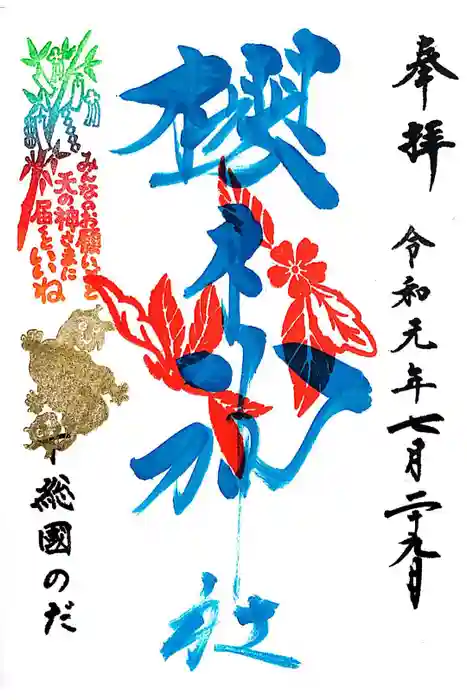 奉拝
令和元年七月二十九日
櫻木神社
みんなのお願いごと
天の神さまに
届くといいね
下総國のだ